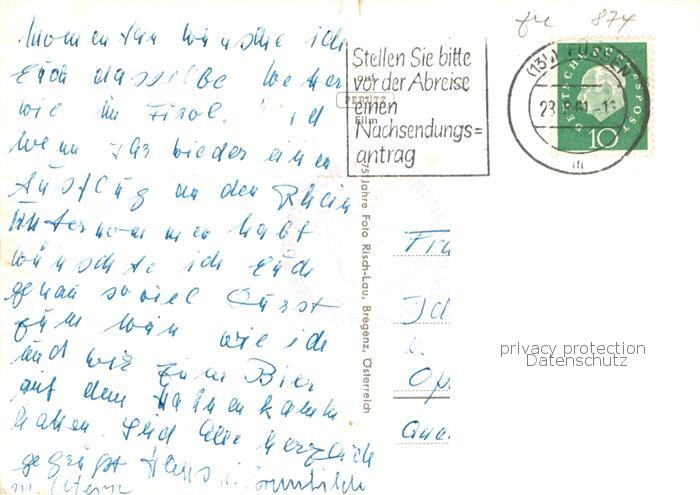 Momentan wünsche ich
Euch dasselbe Wetter
wie in Tirol. Und
wenn Ihr wieder einen
Ausflug an den Rhein
unternommen habt
wünschte ich Euch
genau soviel Durst
zum Wein wie ich
und wir zum Bier
auf dem Hahnenkamm
hatten. Seid alle herzlich
gegrüßt Hans u. Brunhilde
u. Eltern
fre 874
Stellen Sie bitte
vor der Abreise
einen
Nachsendungs=
antrag
auf
PERUTZ
Film
(13b) FÜSSEN
23. 61.-13
m
DEUTSCHE BUNDESPOST
10
75 Jahre Foto Risch-Lau, Bregenz, Österreich
privacy protection
Datenschutz